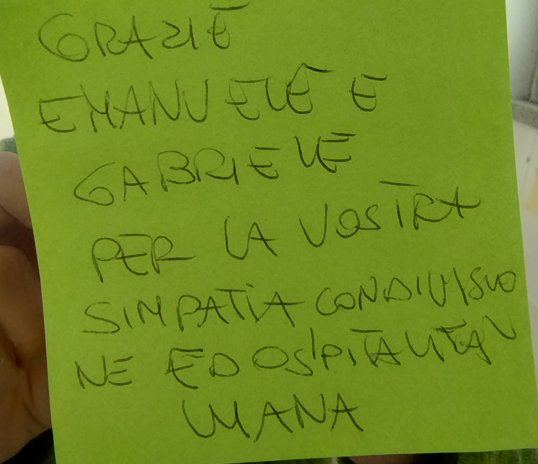 GRAZIE
EMANUELE E
GABRIELE
PER LA VOSTRA
SIMPATIA CONDIVISIO
NE ED OSPITALITA'
UMANA